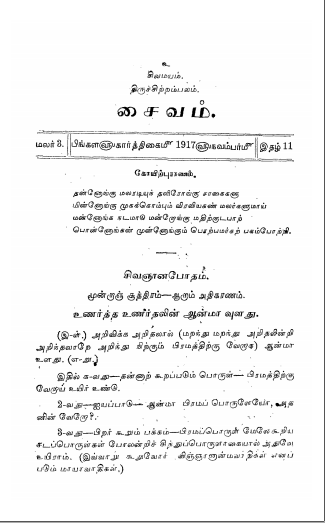 உ
சிவமயம்.
திருச்சிற்றம்பலம்.
சைவம்.
மலர் 3. பிங்களளு கார்த்திகைமீ 1917ளு நவம்பர்மீ இதழ் 11
கோயிற்புராணம்.
தன்னோங்கு மலரடியுந் தளிரோங்கு சாகைகளு
மின்னோங்கு முகக்கொம்பும் விரவியகண் மலர்களுமாய்
மன்னோங்க நடமாடு மன்றோங்கு மதிற்குடபாற்
பொன்னோங்கன் முன்னோங்கும் பொற்பமர்கற் பகம்போற்றி.
சிவஞானபோதம்.
மூன்றாஞ் சூத்திரம்—ஆறாம் அதிகரணம்.
உணர்த்த உணர்தலின் ஆன்மா வுளது.
(இ-ள்.) அறிவிக்க அறிதலால் (மறந்து மறந்து அறிதலின்றி
அறிந்தவாறே அறிந்து நிற்கும் பிரமத்திற்கு வேறாக) ஆன்மா
உளது. (எ-று.)
இதில் க-வது—தன்னாற் கூறப்படும் பொருள்—பிரமத்திற்கு
வேறாய் உயிர் உண்டு.
உ-வது—ஐயப்பாடு—ஆன்மா பிரமப் பொருளேயோ, அத
னின் வேறோ?.
௩-வது—பிறர் கூறும் பக்கம்—பிரமப்பொருள் மேலே கூறிய
சடப்பொருள்கள் போலன்றிச் சித்துப்பொருளாகையால் அதுவே
உயிராம். (இவ்வாறு கூறுவோர் விஞ்ஞானான்மவாதிகள் எனப்
படும் மாயாவாதிகள்.)